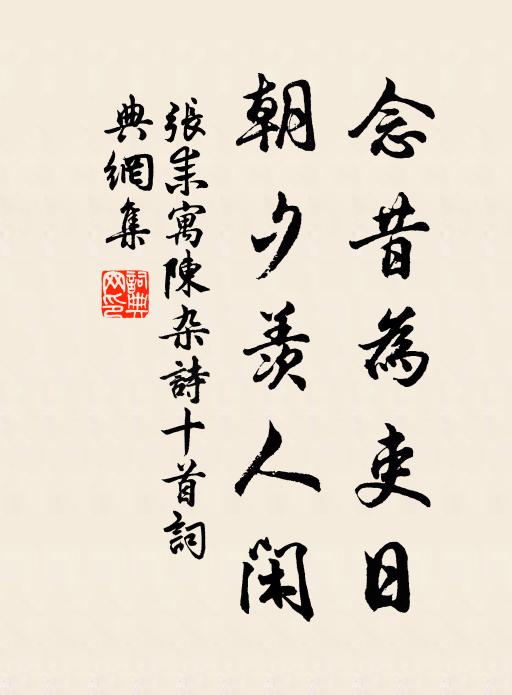 念昔為吏日
朝夕羨人閑
張耒寓陳杂詩十首詞
典網集
詞典
网印